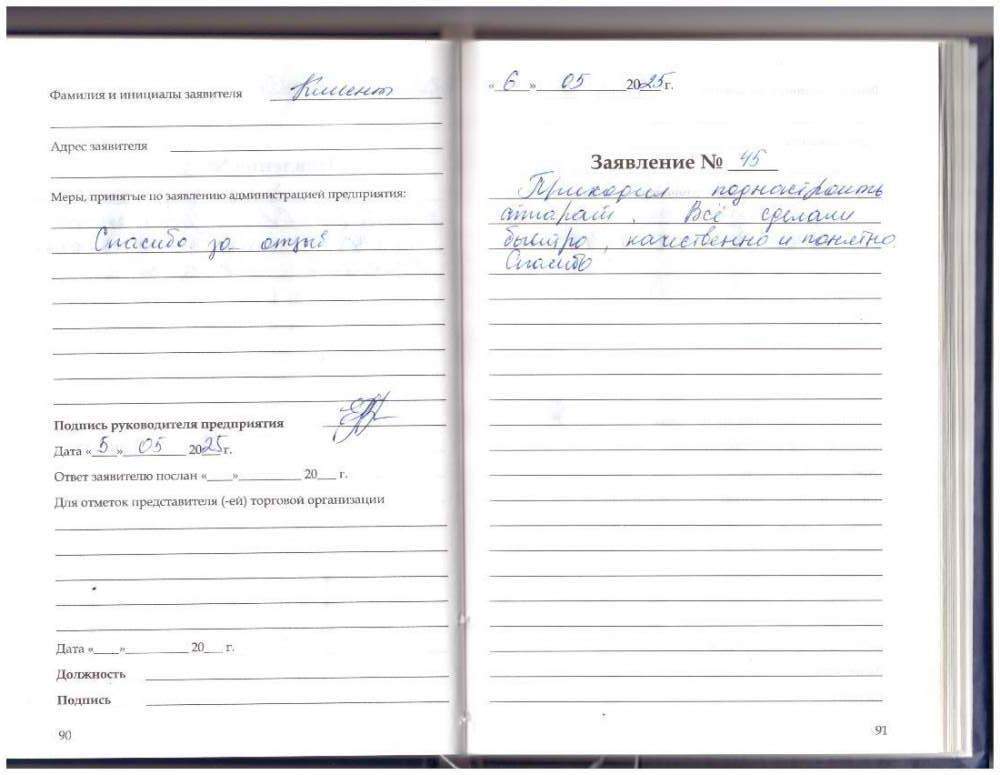 Фамилия и инициалы заявителя Клиент
Адрес заявителя
Меры, принятые по заявлению администрацией предприятия:
Спасибо за отзыв
Подпись руководителя предприятия
Дата «5» 05 2025г.
Ответ заявителю послан «____»__________ 20___ г.
Для отметок представителя (-ей) торговой организации
Дата «____»__________ 20___ г.
Должность
Подпись
90
«6» 05 2025г.
Заявление № 45
Приходил поднастроить
аппарат. Всё сделали
быстро, качественно и понятно.
Спасибо
91